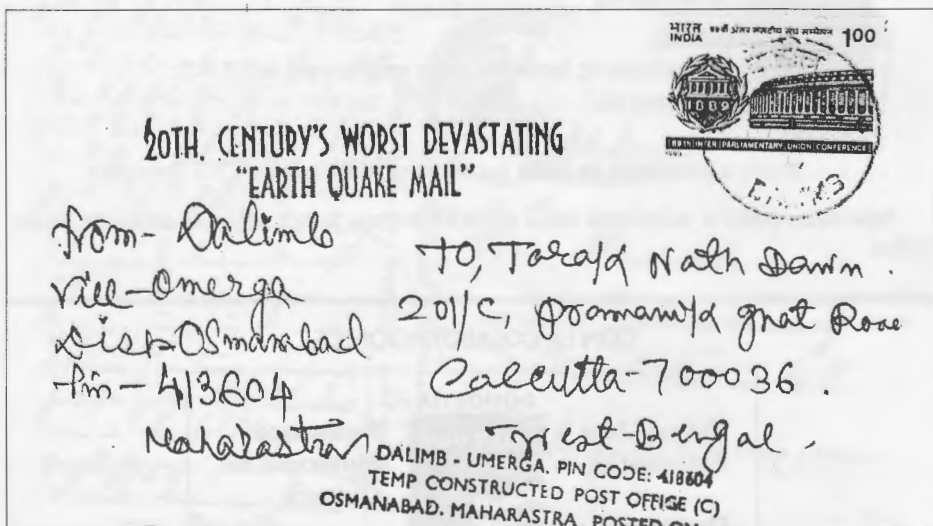 भारत INDIA 1.00
1889
89TH INTER PARLIAMENTARY UNION CONFERENCE
20TH. CENTURY'S WORST DEVASTATING
"EARTH QUAKE MAIL"
from- Dalimb
Vill-Omerga
Dist-Osmanabad
Pin-413604
Maharastra
TO, Tarak Nath Dawn.
201/C, Pramanik Ghat Road
Calcutta-700036.
West-Bengal.
DALIMB - UMERGA. PIN CODE: 413604
TEMP CONSTRUCTED POST OFFICE (C)
OSMANABAD. MAHARASTRA POSTED ON